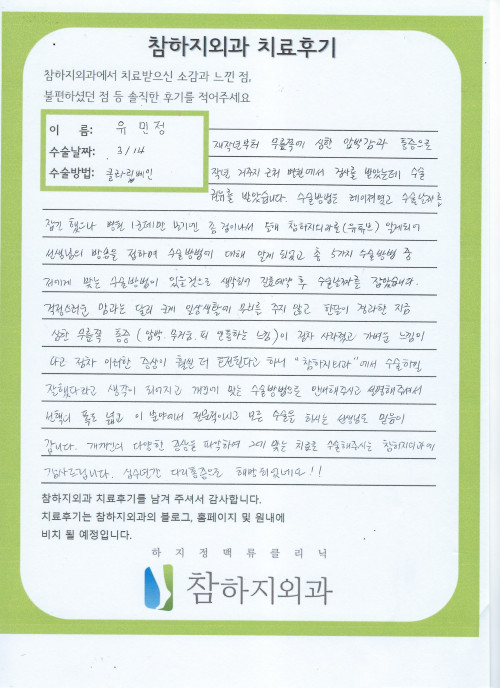 참하지외과 치료후기
참하지외과에서 치료받으신 소감과 느낀 점,
불편하셨던 점 등 솔직한 후기를 적어주세요
이 름: 유민정
수술날짜: 3/14
수술방법: 클라리베인
재작년부터 무릎쪽에 심한 압박감과 통증으로
작년 거주지 근처 병원에서 검사를 받았는데 수술
권유를 받았습니다. 수술방법은 레이져였고 수술날짜를
잡긴 했으나 병원 1곳에만 맡기긴 좀 겁이나서 참하지외과를 (유튜브) 알게되어
선생님의 방송을 접하며 수술방법에 대해 알게 되었고 총 5가지 수술방법 중
저에게 맞는 수술방법이 있을것으로 생각되어 진료예약 후 수술날짜를 잡았습니다.
걱정스러운 맘과는 달리 크게 일상생활에 무리를 주지 않고 한달이 경과한 지금
심한 무릎쪽 통증 (압박, 무거움, 피 안통하는 느낌)이 점차 사라졌고 가벼운 느낌이
나고 점차 이러한 증상이 훨씬 더 호전된다고 하니 "참하지외과"에서 수술하길
잘했다라고 생각이 되어지고 개인에 맞는 수술방법으로 안내해주시고 설명해주셔서
선택의 폭도 넓고 이 분야에서 전문적이시고 모든 수술을 하시는 선생님도 믿음이
갑니다. 개개인의 다양한 증상을 파악하여 그에 맞는 치료를 수술해주시는 참하지외과에
감사드립니다. 십수년간 다리통증으로 해방되었네요!!
참하지외과 치료후기를 남겨 주셔서 감사합니다.
치료후기는 참하지외과의 블로그, 홈페이지 및 원내에
비치 될 예정입니다.
하지정맥류클리닉
참하지외과